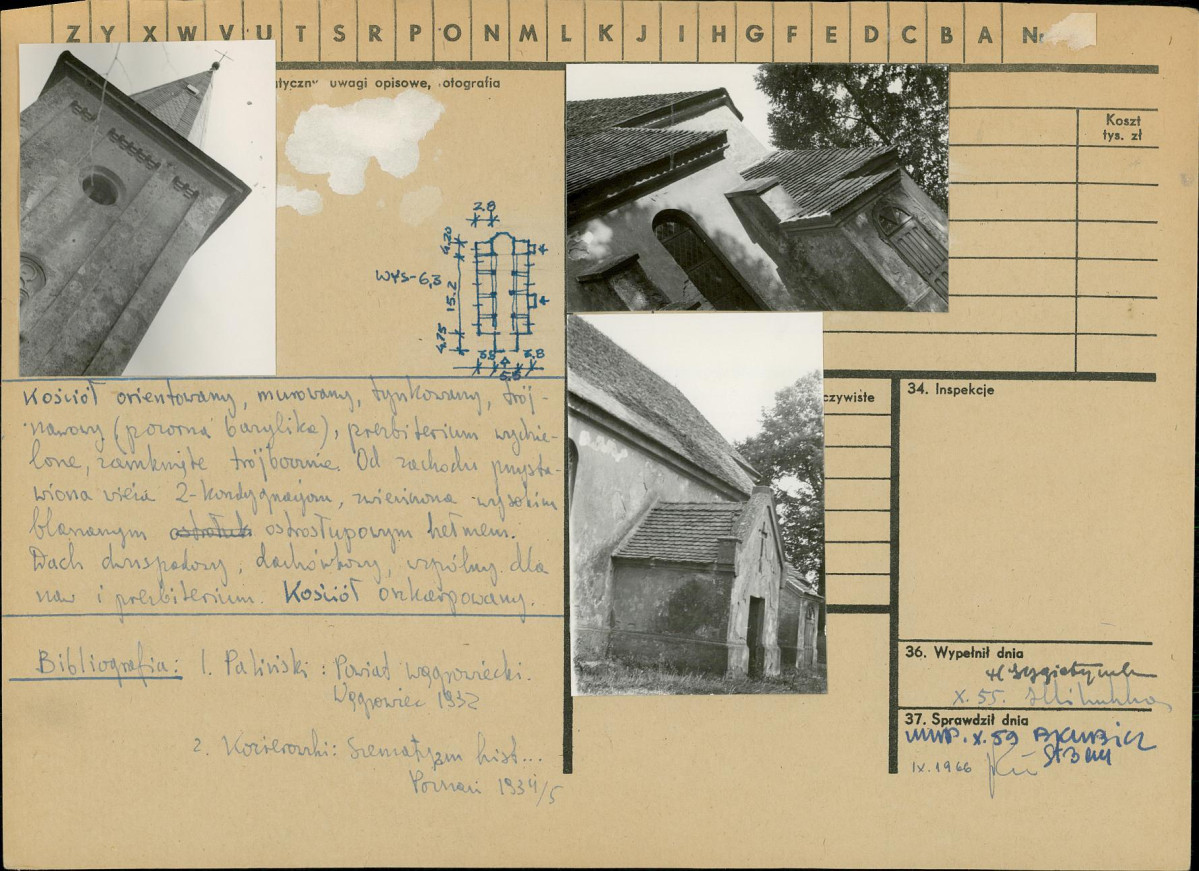 Z Y X W V U T S R P O N M L K J I H G F E D C B A Nr
uwagi opisowe, fotografia
Koszt
tys. zł
2.8
4.20
WYS-6,3
15.2
4.75
3.8 4 3.8
5.5
Kościół orientowany, murowany, tynkowany, trój-
nawowy (pozorna bazylika), prezbiterium wydzie-
lone, zamknięte trójbocznie. Od zachodu przysta-
wiona wieża 2-kondygnacjowa, zwieńczona wysokim
blaszanym ostrosłupowym hełmem.
Dach dwuspadowy, dachówkowy, wspólny dla
naw i prezbiterium. Kościół oszkarpowany.
Bibliografia: 1. Paliński: Powiat wągrowiecki.
Wągrowiec 1932
2. Kozierowski: Szematyzm hist...
Poznań 1934/5
czywiste
34. Inspekcje
36. Wypełnił dnia
X. 55.
37. Sprawdził dnia
X.59
IX.1966